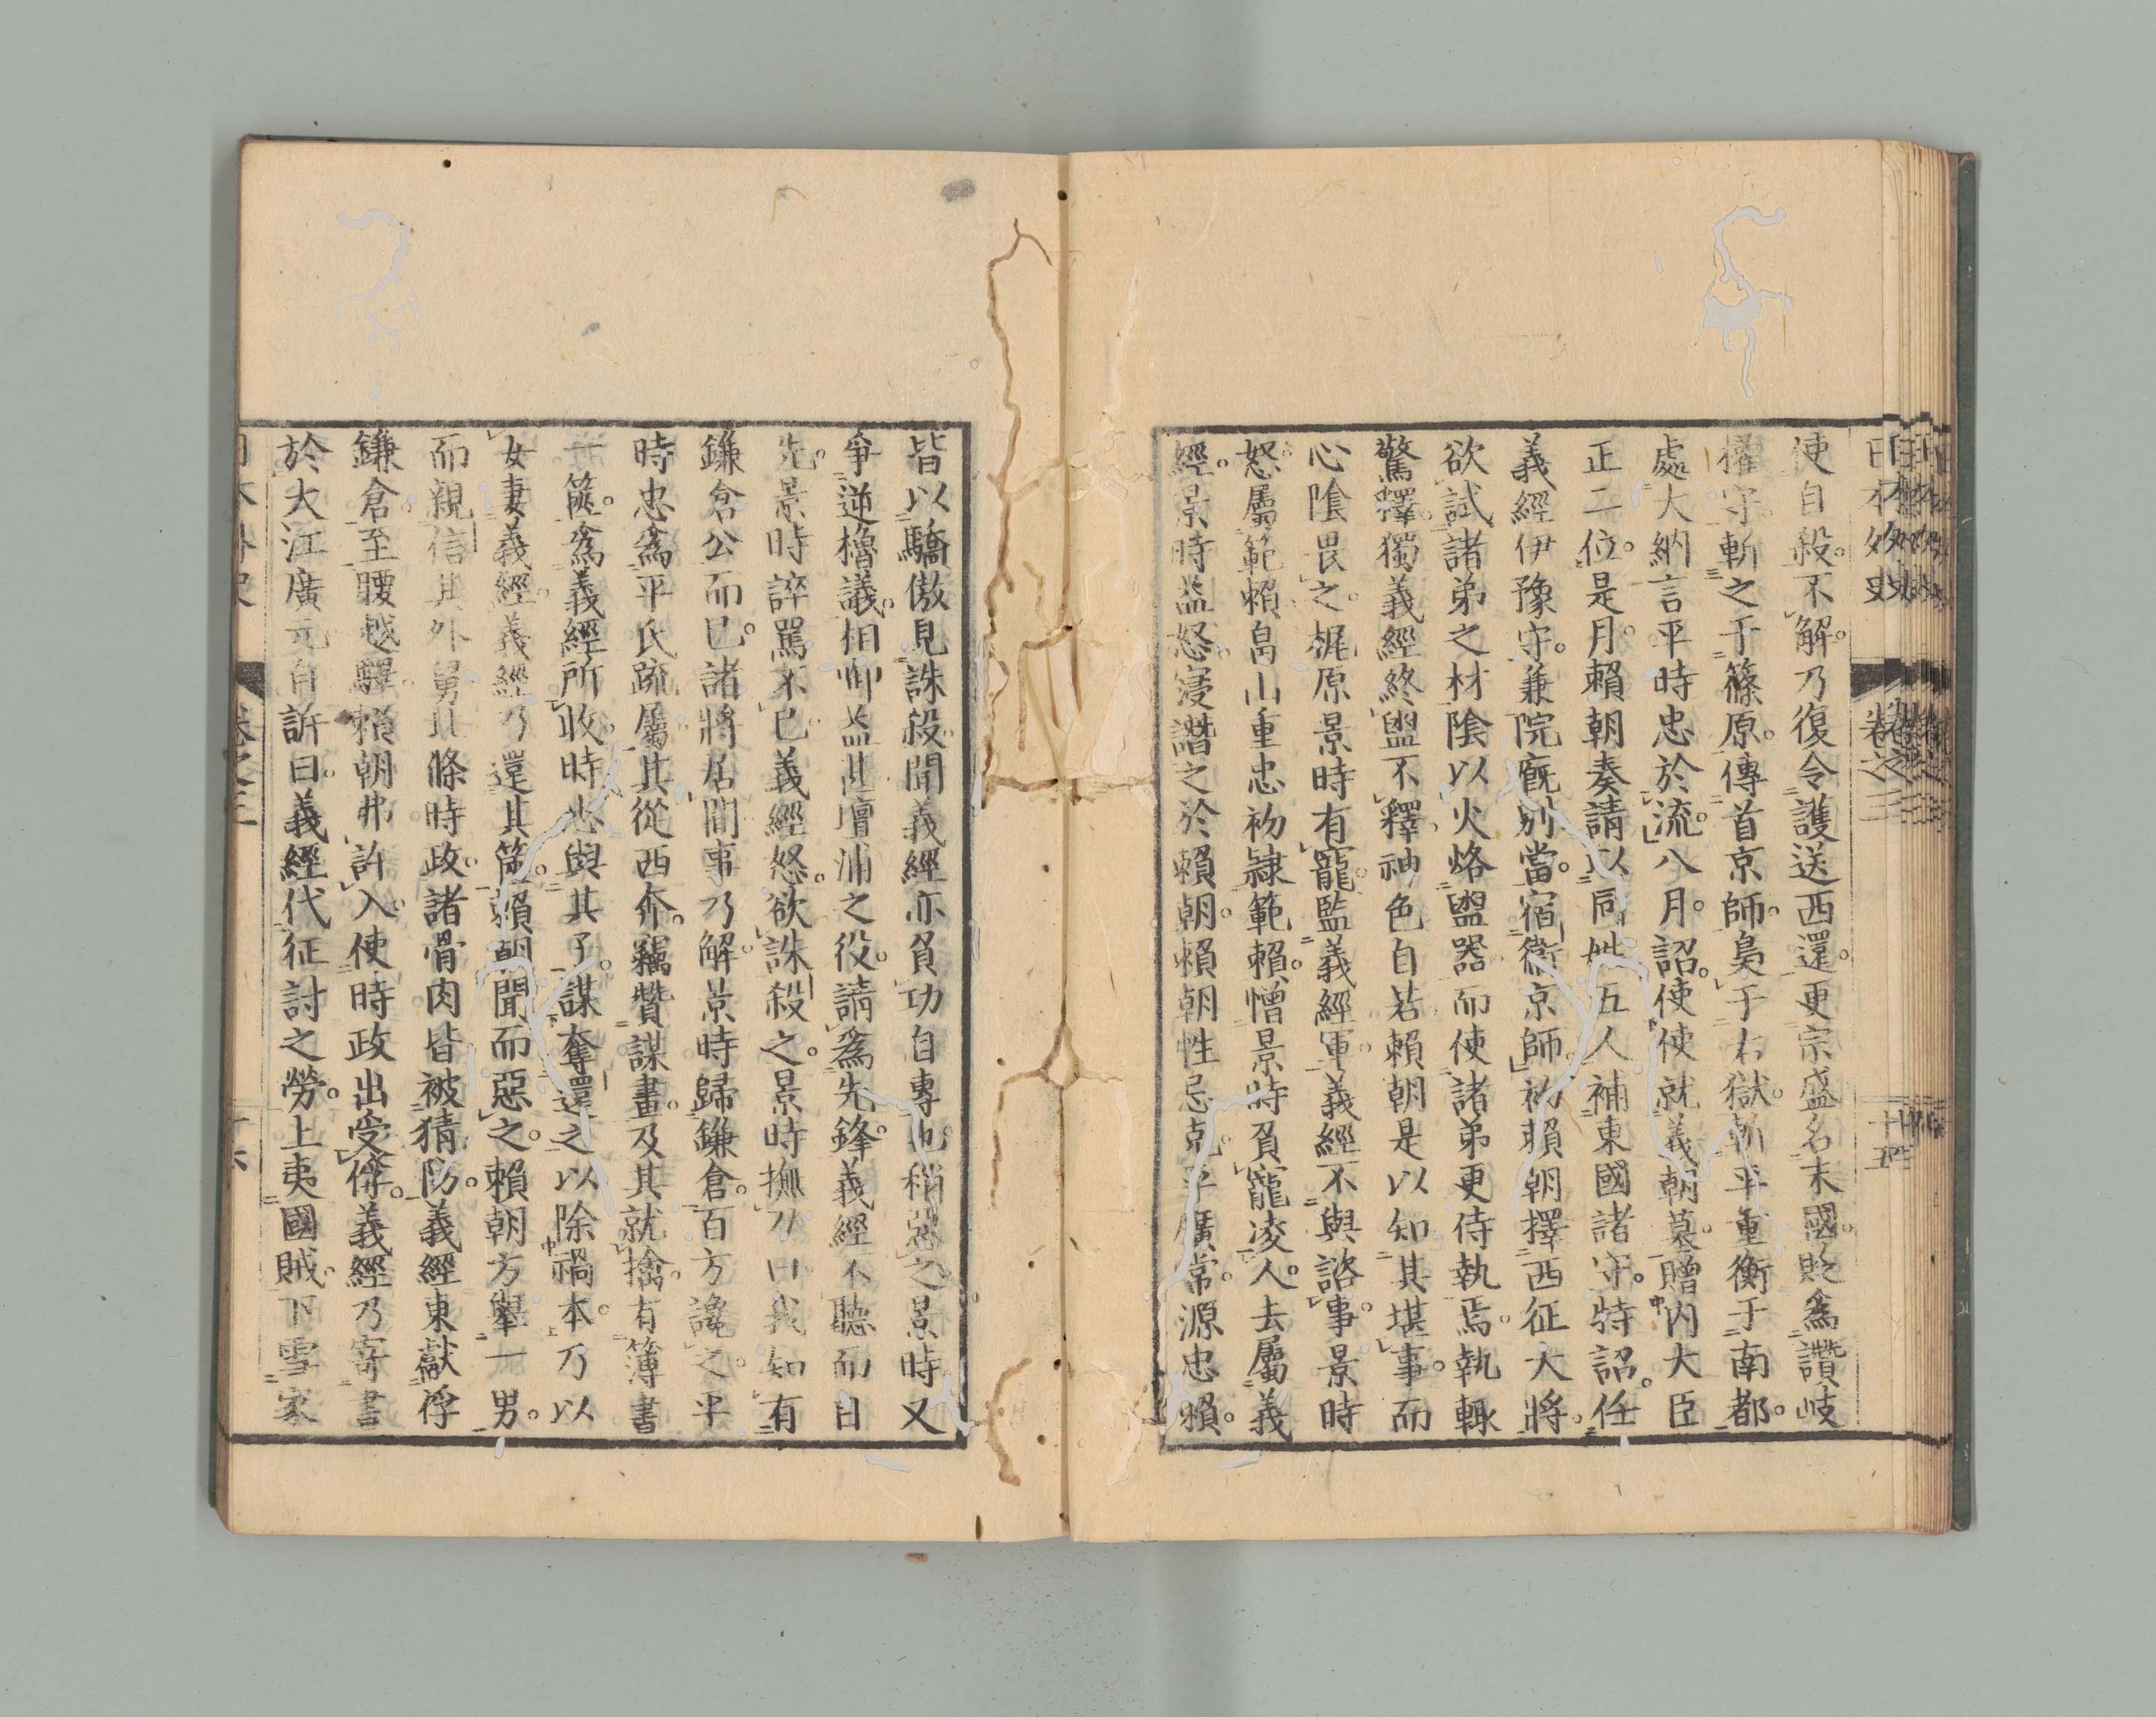 日本外史
卷之三
十五
使自殺。不解。乃復令護送西還。更宗盛名末國。貶爲讚岐
權守。斬之于篠原。傳首京師。梟于右獄。斬平重衡于南都。
處大納言平時忠於流。八月。詔。使使就義朝墓。贈內大臣
正二位。是月。賴朝奏請以同姓五人補東國諸守。特詔。任
義經伊豫守。兼院廐別當。宿衞京師。初賴朝擇西征大將。
欲試諸弟之材。陰以火烙盥器。而使諸弟更侍執焉。執輙
驚釋。獨義經終盥不釋。神色自若。賴朝是以知其堪事。而
心陰畏之。梶原景時有寵。監義經軍。義經不與諮事。景時
怒。屬範賴。畠山重忠初隸範賴。憎景時負寵凌人。去屬義
經。景時益怒。寖譖之於賴朝。賴朝性忌克。平廣常。源忠賴。
皆以驕傲見誅殺。聞義經亦負功自專也。稍惡之。景時又
爭逆櫓議。相啣益甚。壇浦之役。請爲先鋒。義經不聽而自
先。景時誶罵不已。義經怒。欲誅殺之。景時撫刀曰。我知有
鎌倉公而已。諸將居間。事乃解。景時歸鎌倉。百方讒之。平
時忠爲平氏疏屬。其從西奔。竊贊謀畫。及其就擒。有簿書
一篋。爲義經所收。時忠與其子。謀奪還之。以除禍本。乃以
女妻義經。義經乃還其篋。賴朝聞而惡之。賴朝方舉一男。
而親信其外舅北條時政。諸骨肉皆被猜防。義經東獻俘
鎌倉。至腰越驛。賴朝弗許入。使時政出受俘。義經乃寄書
於大江廣元自訴曰。義經代征討之勞。上夷國賊。下雪家
日本外史
卷之三
十六